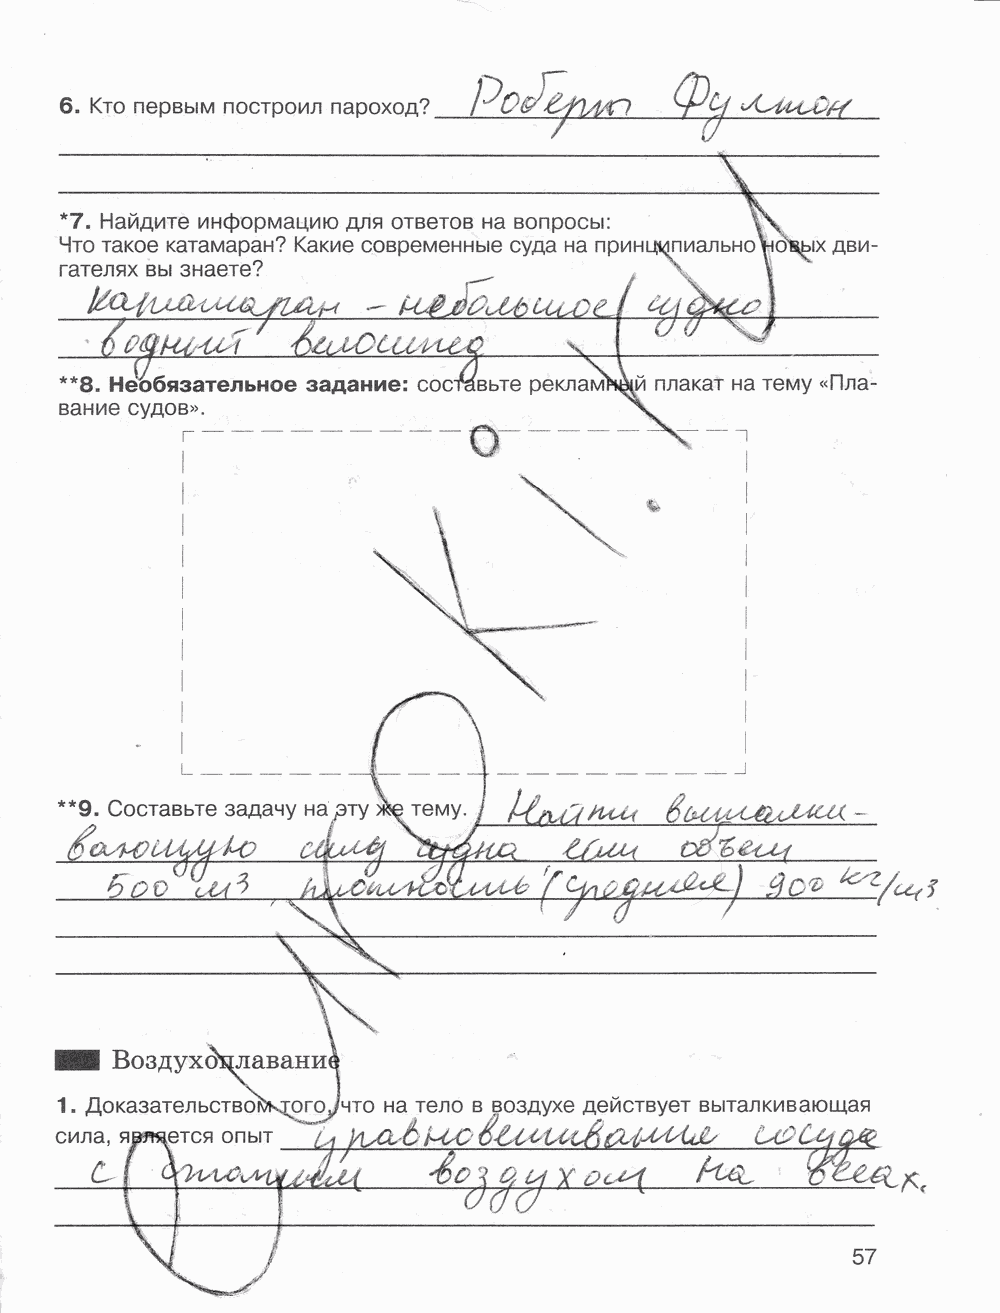 6. Кто первым построил пароход? Роберт Фултон
*7. Найдите информацию для ответов на вопросы:
Что такое катамаран? Какие современные суда на принципиально новых дви-
гателях вы знаете?
катамаран – небольшое судно
водный велосипед
**8. Необязательное задание: составьте рекламный плакат на тему «Пла-
вание судов».
**9. Составьте задачу на эту же тему. Найти выталки-
вающую силу судна если объем
500 м3, плотность (средняя) 900 кг/м3
Воздухоплавание
1. Доказательством того, что на тело в воздухе действует выталкивающая
сила, является опыт уравновешивания сосуда
с воздухом на весах.
57